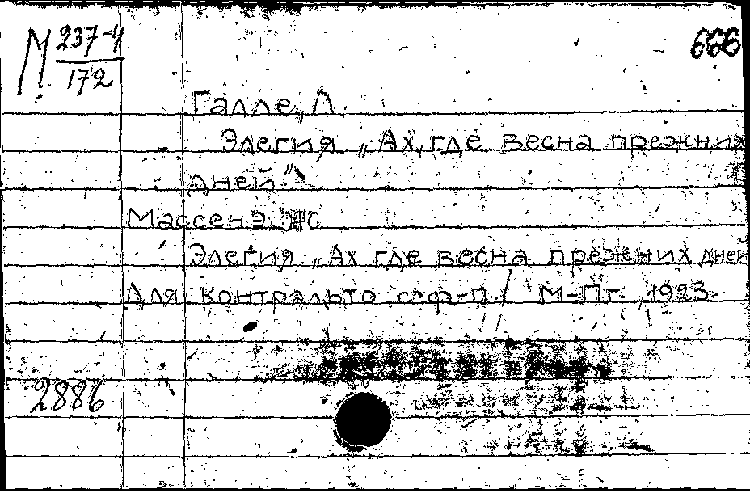 М 237-4
172
666
Галле, Л.
Элегия „Ах, где весна прежних
дней“
Массенэ Ж.
Элегия „Ах где весна прежних дней
Для контральто с ф-п / М-Пг. 1923
2886